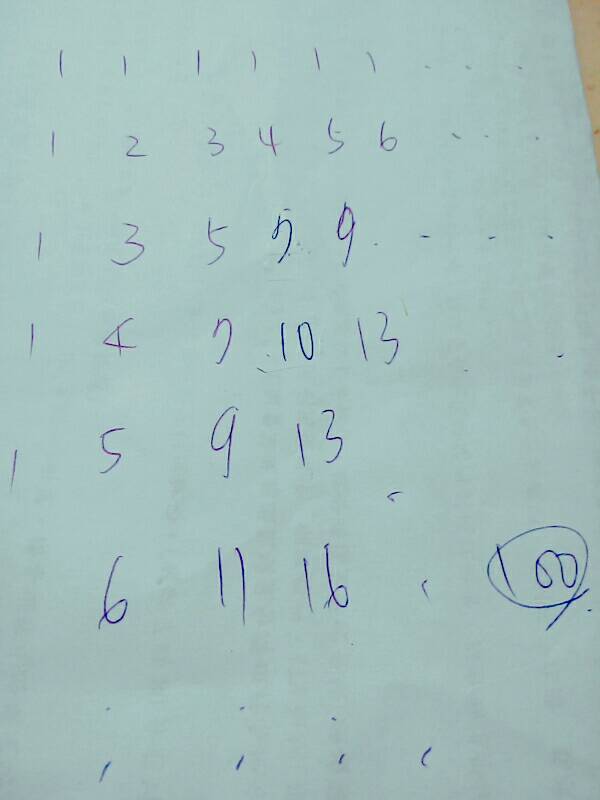 1 1 1 1 1 1 . . .
1 2 3 4 5 6 . . .
1 3 5 7 9 . . . .
1 4 7 10 13 . .
1 5 9 13 .
6 11 16 . 100
. . .
. . . .